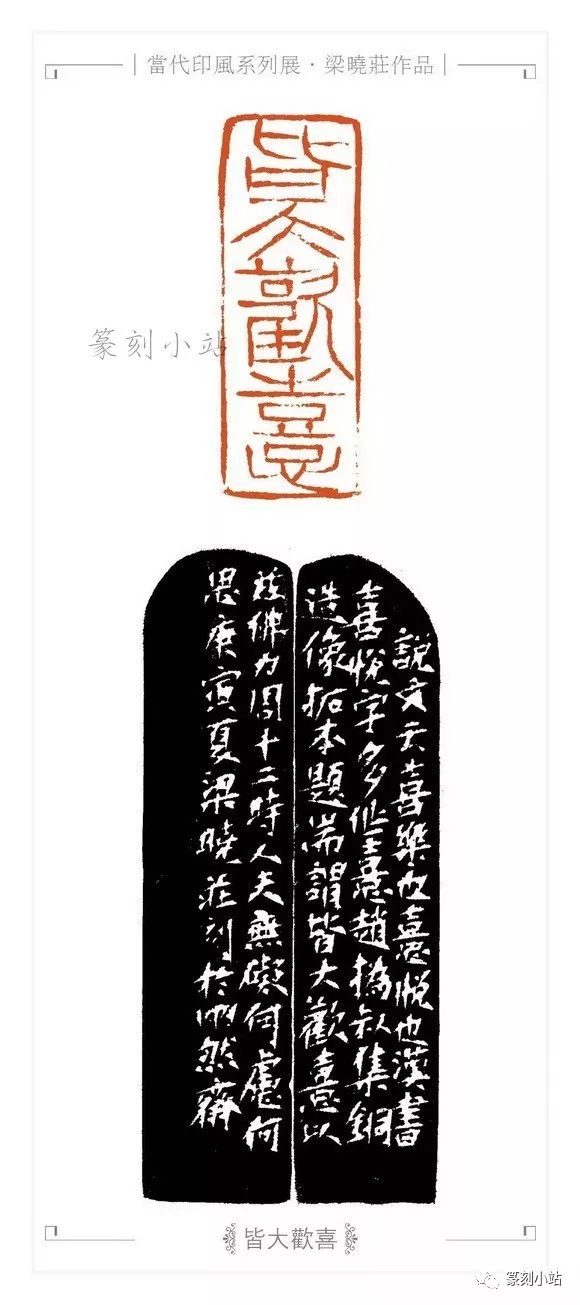 |當代印風系列展·梁曉莊作品|
皆大歡憙
篆刻小站
說文云喜樂也憙悅也漢書
喜悅字多作憙趙撝叔集銅
造像拓本題耑謂皆大歡憙以
茲佛力周十二時人天無礙何慮何
思庚寅夏梁曉莊刻於然齋
皆大歡喜
篆刻小站